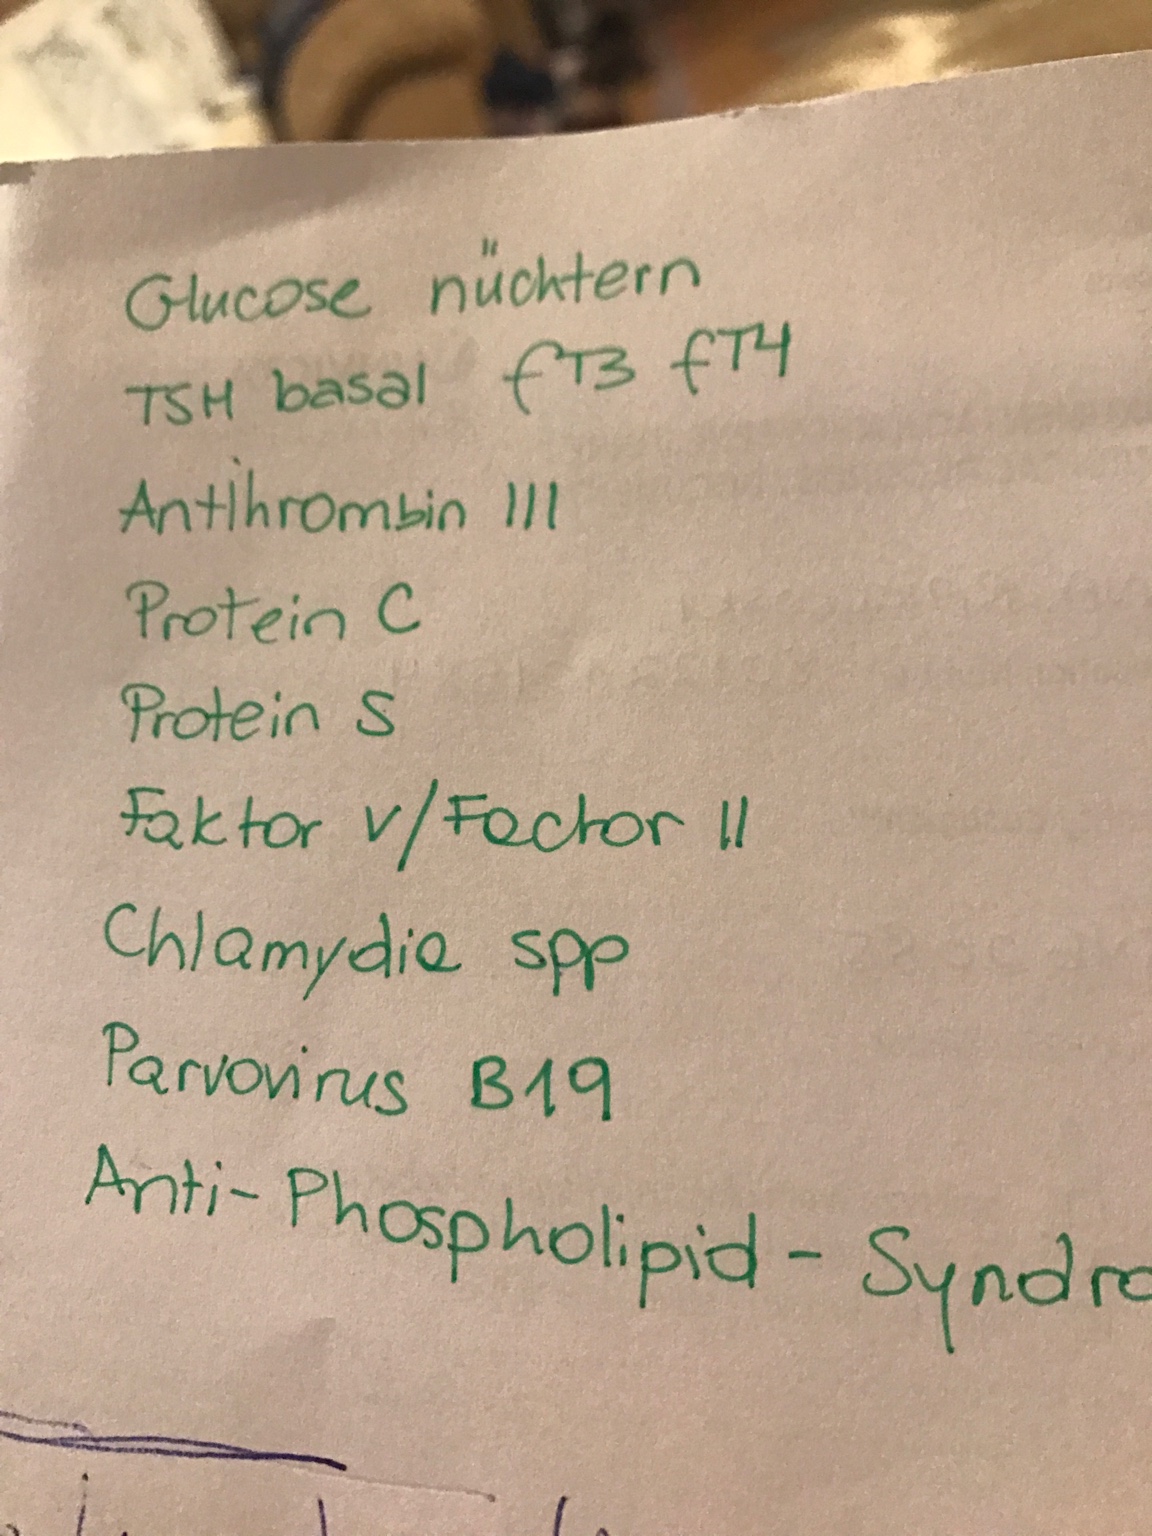 Glucose nüchtern
TSH basal fT3 fT4
Antihrombin III
Protein C
Protein S
Faktor V/Factor II
Chlamydia spp
Parvovirus B19
Anti-Phospholipid-Syndro